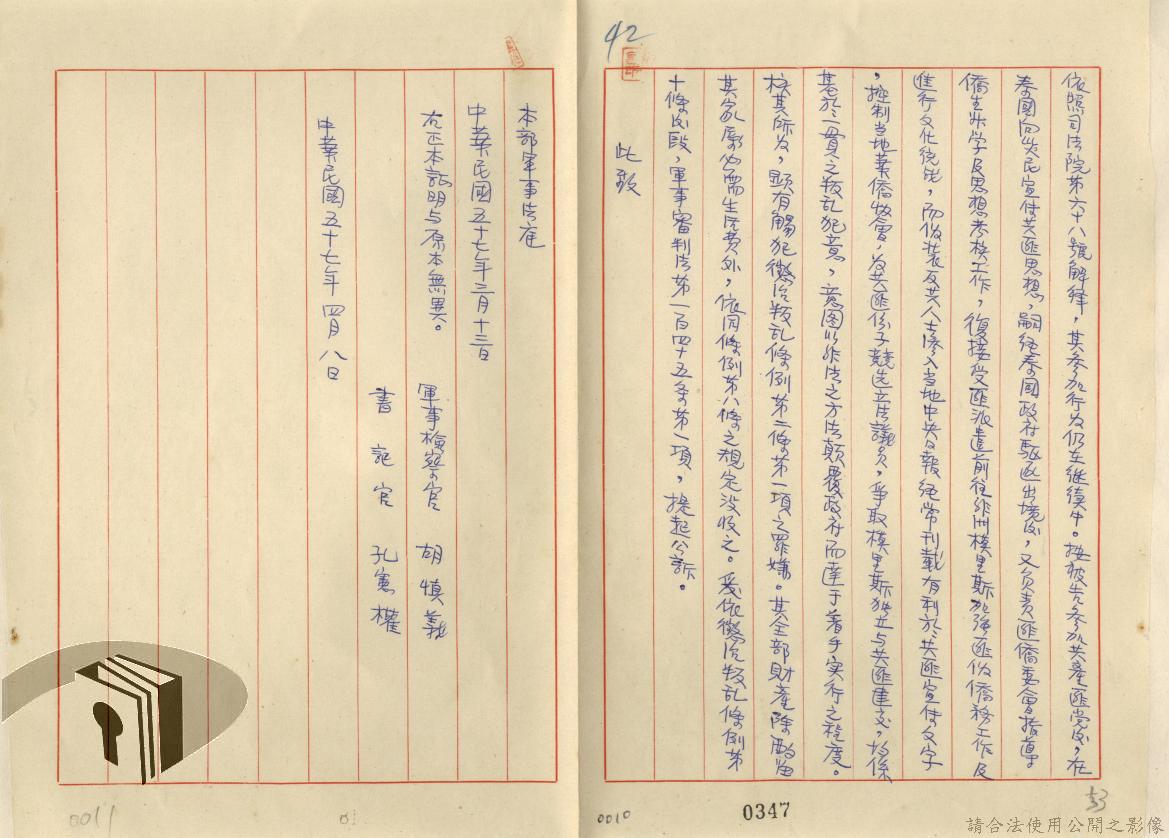 42
依照司法院第六十八號解釋，其參加行為仍在繼續中。按被告參加共產匪党後，在
泰國向災民宣伝共匪思想，嗣經泰國政府駆逐出境後，又负责匪僑委會指導
僑生升学及思想考核工作，復接受匪派遣前往非洲模里斯加強匪伪僑務工作及
進行文化统战，而伪装反共人士滲入当地中央日報經常刊載有利於共匪宣伝文字
，控制当地華僑牧會，為共匪份子競选立法議员，爭取模里斯独立与共匪建交，均係
基於一貫之叛乱犯意，意图以非法之方法顛覆政府而達于著手实行之程度。
核其所为，顕有觸犯懲治叛乱條例第二條第一項之罪嫌。其全部財產除酌留
其家屬必需生活费外，依同條例第八條之規定没收之。爰依懲治叛乱條例第
十條後段，軍事審判法第一百四十五条第一項，提起公訴。
此致
0347
0010
53
本部軍事法庭
中華民國五十七年三月十三日
右正本証明与原本無異。
軍事檢察官 胡慎義
書記官 孔憲權
中華民國五十七年四月八日
0011
請合法使用公開之影像